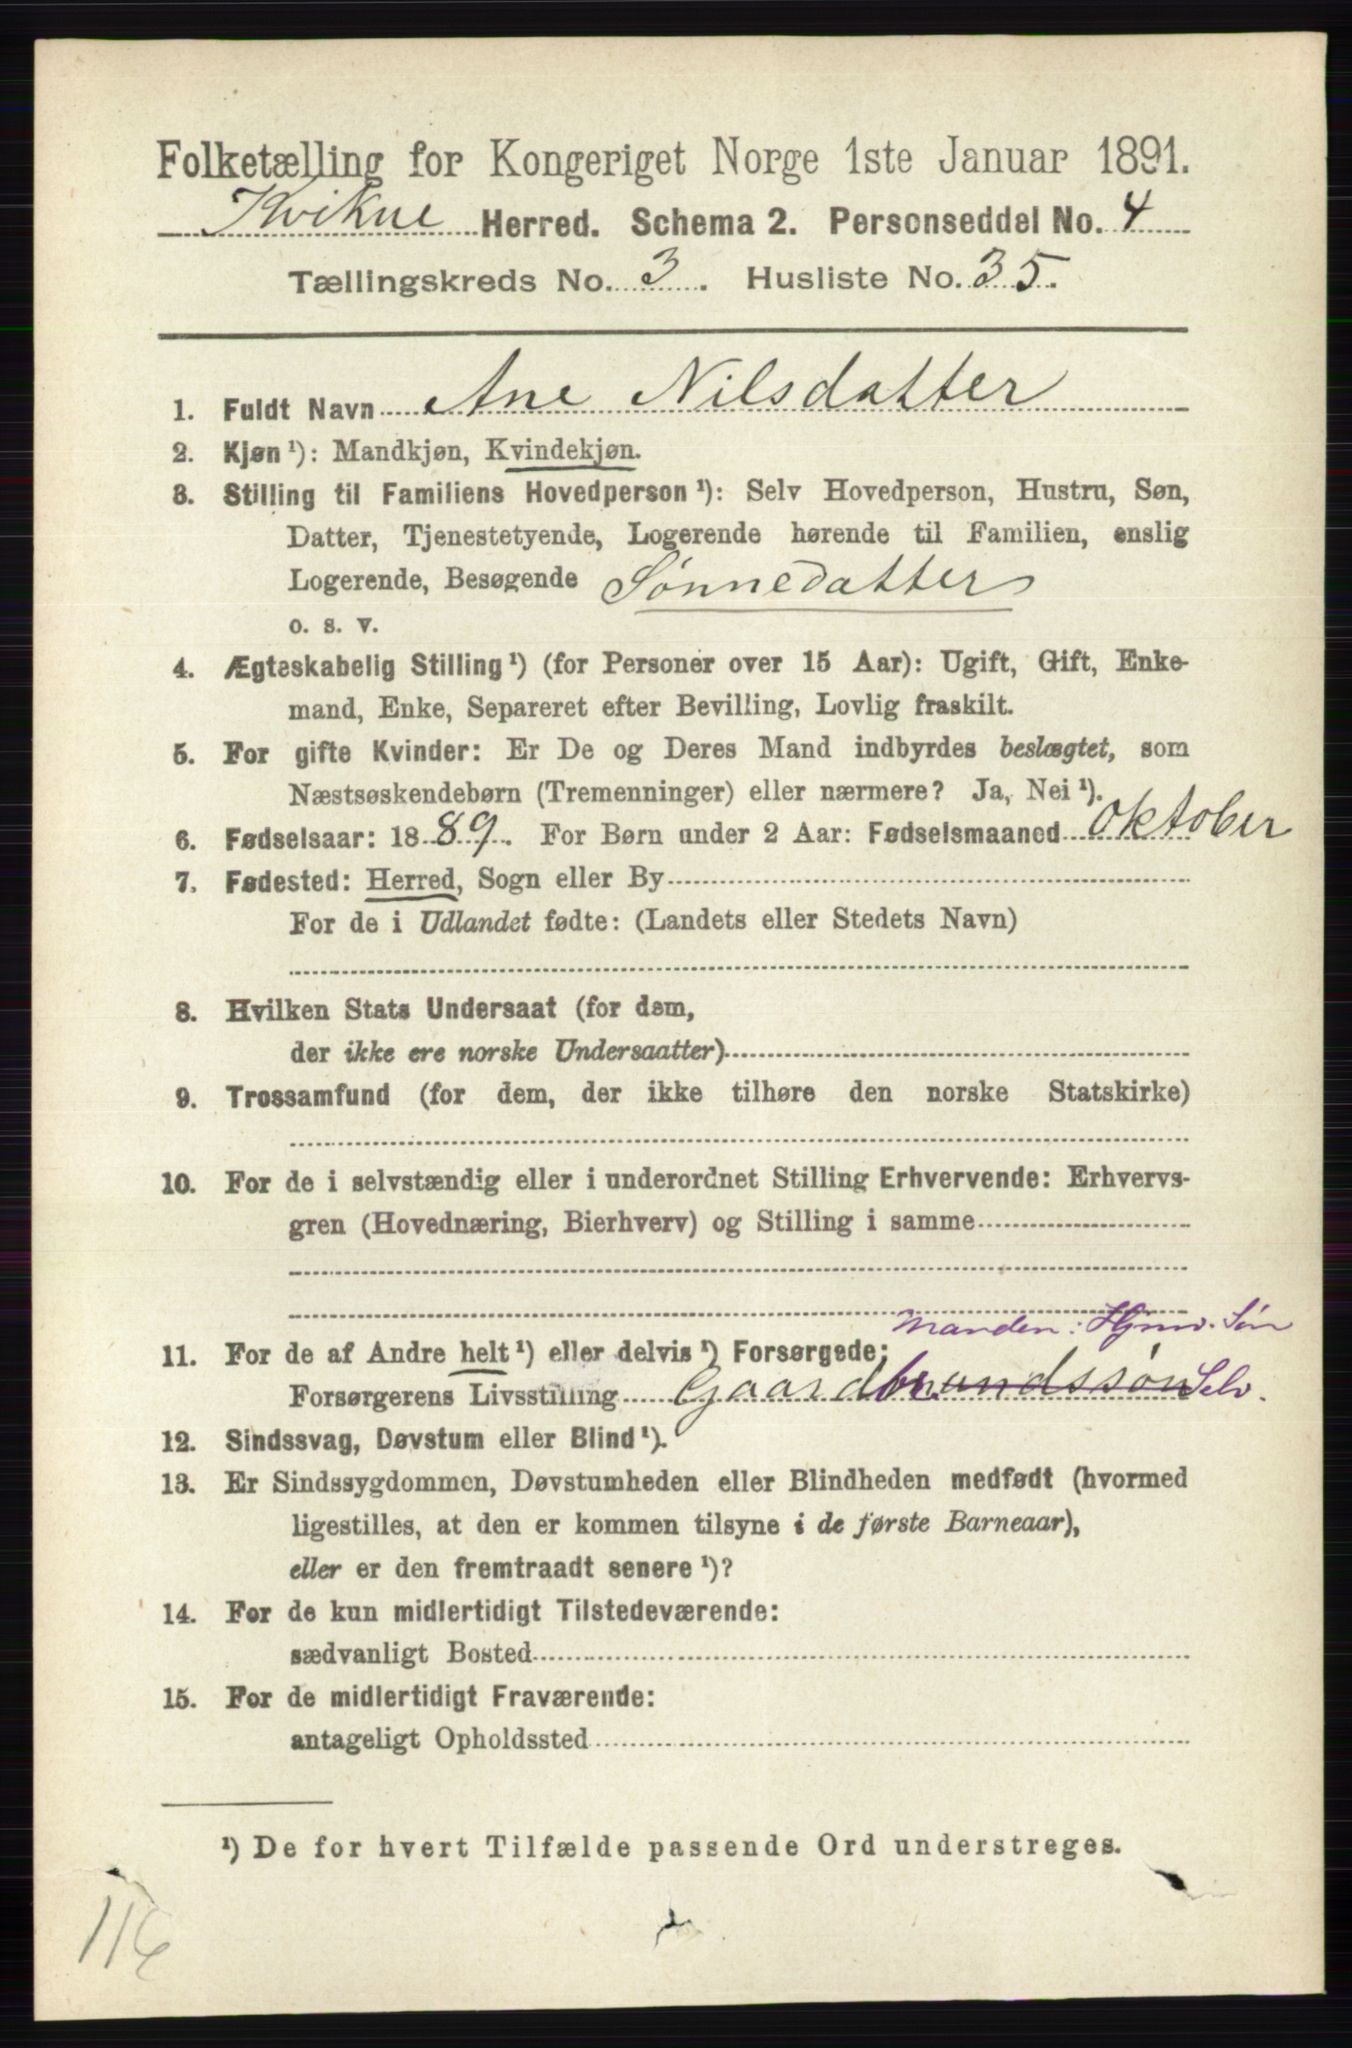 Folketælling for Kongeriget Norge 1ste Januar 1891.
Kvikne Herred. Schema 2. Personseddel No. 4
Tællingskreds No. 3. Husliste No. 35.
1. Fuldt Navn Ane Nilsdatter
2. Kjøn¹): Mandkjøn, Kvindekjøn.
3. Stilling til Familiens Hovedperson¹): Selv Hovedperson, Hustru, Søn,
Datter, Tjenestetyende, Logerende hørende til Familien, enslig
Logerende, Besøgende Sønnedatter
o. s. v.
4. Ægteskabelig Stilling¹) (for Personer over 15 Aar): Ugift, Gift, Enke-
mand, Enke, Separeret efter Bevilling, Lovlig fraskilt.
5. For gifte Kvinder: Er De og Deres Mand indbyrdes beslægtet, som
Næstsøskendebørn (Tremenninger) eller nærmere? Ja, Nei¹).
6. Fødselsaar: 1889. For Børn under 2 Aar: Fødselsmaaned oktober
7. Fødested: Herred, Sogn eller By
For de i Udlandet fødte: (Landets eller Stedets Navn)
8. Hvilken Stats Undersaat (for dem,
der ikke ere norske Undersaatter)
9. Trossamfund (for dem, der ikke tilhøre den norske Statskirke)
10. For de i selvstændig eller i underordnet Stilling Erhvervende: Erhvervs-
gren (Hovednæring, Bierhverv) og Stilling i samme
Manden: Hjmv. Søn
11. For de af Andre helt¹) eller delvis¹) Forsørgede:
Forsørgerens Livsstilling Gaardbrundssøn Selv.
12. Sindssvag, Døvstum eller Blind¹).
13. Er Sindssygdommen, Døvstumheden eller Blindheden medfødt (hvormed
ligestilles, at den er kommen tilsyne i de første Barneaar),
eller er den fremtraadt senere¹)?
14. For de kun midlertidigt Tilstedeværende:
sædvanligt Bosted
15. For de midlertidigt Fraværende:
antageligt Opholdssted
¹) De for hvert Tilfælde passende Ord understreges.
116